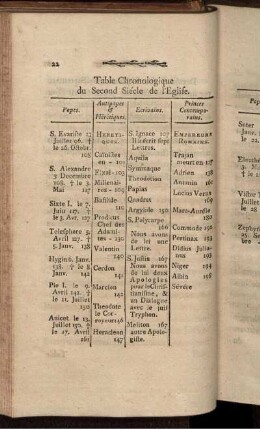 22
Table Chronologique
du Second Siécle de l'Eglise.
Papes.
S. Evariste 13
Juillet 96. †
le 26. Octobr.
108
S. Alexandre
3 Decembre
108. † le 3.
Mai 117
Sixte I. le 7.
Juin 117. †
le 3. Avr. 127
Telesphore 5.
Avril 127. †
5. Janv. 138
Hygin 6. Janv.
138. † le 8.
Janv. 142
Pie I. le 9.
Avril 142. †
le 11. Juillet
150
Anicet le 13.
Juillet 150. †
le 17 Avril
Antipapes
&
Hérétiques.
HERETIQUES.
en 101
Elxai 103
Millenaires
Basilide
110
Prodicus
Chef des
Adamites 130
Valentin
140
Cerdon
141
Marcion
142
Theodote
le Corroyeur
Heracleon
147
Ecrivains.
S. Ignace 107
Lettres.
Aquila
Symmaque
Theodotion
Papias
Quadrat
Aristide 130
S. Polycarpe
166
Nous avons
de lui une
Lettre.
S. Justin 167
Nous avons
de lui deux
Apologies
pour le Christianisme, &
un Dialogue
avec le juif
Tryphon.
Meliton 167
autre Apologiste.
Princes
Contemporains.
EMPEREURS
ROMAINS.
Trajan
meurt en 117
Adrien 138
Antonin 161
Lucius Verus
169
Marc-Aurèle
180
Commode 192
Pertinax 193
Didius Julianus 193
Niger 194
Albin 198
Sévère